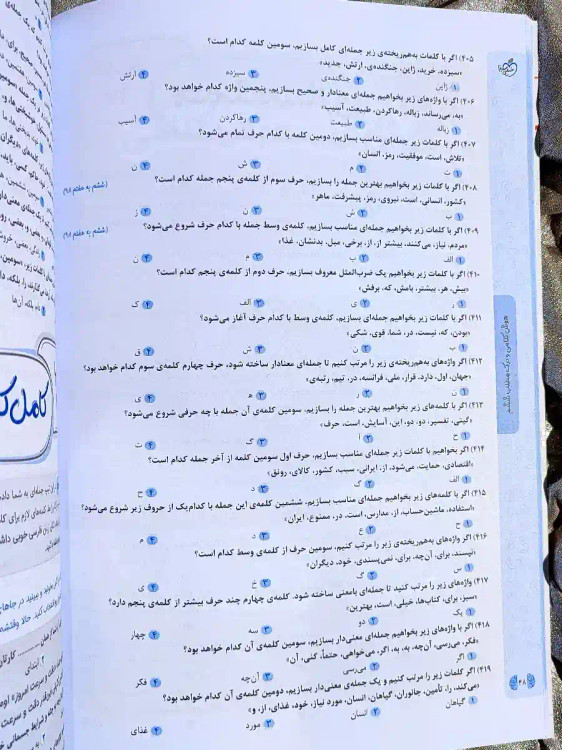 ۴۰۵) اگر با کلمات به‌هم‌ریخته‌ی زیر جمله‌ای کامل بسازیم، سومین کلمه کدام است؟
«سیزده، خرید، ژاپن، جنگنده‌ی، ارتش، جدید»
۱ ژاپن ۲ جنگنده‌ی ۳ سیزده ۴ ارتش
۴۰۶) اگر با واژه‌های زیر بخواهیم جمله‌ای معنادار و صحیح بسازیم، پنجمین واژه کدام خواهد بود؟
«به، می‌رساند، زباله، رهاکردن، طبیعت، آسیب»
۱ زباله ۲ طبیعت ۳ رهاکردن ۴ آسیب
۴۰۷) اگر با کلمات زیر جمله‌ای مناسب بسازیم، دومین کلمه با کدام حرف تمام می‌شود؟
«تلاش، است، موفقیت، رمز، انسان»
۱ ت ۲ م ۳ ش ۴ ن
۴۰۸) اگر با کلمات زیر بخواهیم بهترین جمله را بسازیم، حرف سوم از کلمه‌ی پنجم جمله کدام است؟ (ششم به هفتم ۹۸)
«کشور، انسانی، است، نیروی، رمز، پیشرفت، ماهر»
۱ ب ۲ ش ۳ ن ۴ ز
۴۰۹) اگر با کلمات زیر بخواهیم جمله‌ای مناسب بسازیم، کلمه‌ی وسط جمله با کدام حرف شروع می‌شود؟ (ششم به هفتم ۹۸)
«مردم، نیاز، می‌کنند، بیشتر از، از، برخی، میل، بدنشان، غذا»
۱ الف ۲ ب ۳ م ۴ ن
۴۱۰) اگر با کلمات زیر بخواهیم یک ضرب‌المثل معروف بسازیم، حرف دوم از کلمه‌ی پنجم کدام است؟
«بیش، هر، بیشتر، بامش، که، برفش»
۱ ر ۲ ی ۳ الف ۴ ک
۴۱۱) اگر با کلمات زیر بخواهیم جمله‌ای مناسب بسازیم، کلمه‌ی وسط با کدام حرف آغاز می‌شود؟
«بودن، که، نیست، در، شما، قوی، شکی»
۱ ب ۲ ن ۳ ش ۴ ق
۴۱۲) اگر واژه‌های به‌هم‌ریخته‌ی زیر را مرتب کنیم تا جمله‌ای معنادار ساخته شود، حرف چهارم کلمه‌ی سوم کدام خواهد بود؟
«جهان، اول، دارد، قرار، ملی، فرانسه، در، تیم، رتبه‌ی»
۱ ن ۲ ر ۳ ه ۴ ی
۴۱۳) اگر با کلمه‌های زیر بخواهیم بهترین جمله را بسازیم، سومین کلمه‌ی آن جمله با چه حرفی شروع می‌شود؟
«گیتی، تفسیر، دو، دو، این، آسایش، است، حرف»
۱ ح ۲ آ ۳ گ ۴ ت
۴۱۴) اگر بخواهیم با کلمات زیر جمله‌ای مناسب بسازیم، حرف اول سومین کلمه از آخر جمله کدام است؟
«اقتصادی، حمایت، می‌شود، از، ایرانی، سبب، کشور، کالای، رونق»
۱ الف ۲ گ ۳ د ۴ ح
۴۱۵) اگر با کلمه‌های زیر بخواهیم جمله‌ای مناسب بسازیم، ششمین کلمه‌ی این جمله با کدام‌یک از حروف زیر شروع می‌شود؟
«استفاده، ماشین‌حساب، از، مدارس، است، در، ممنوع، ایران»
۱ ح ۲ ع ۳ د ۴ م
۴۱۶) اگر واژه‌های به‌هم‌ریخته‌ی زیر را مرتب کنیم، سومین حرف از کلمه‌ی وسط کدام است؟
«نپسند، برای، آن‌چه، برای، نمی‌پسندی، خود، دیگران»
۱ س ۲ گ ۳ خ ۴ ی
۴۱۷) واژه‌های زیر را مرتب کنید تا جمله‌ای بامعنی ساخته شود. کلمه‌ی چهارم چند حرف بیشتر از کلمه‌ی پنجم دارد؟
«سبز، برای، کتاب‌ها، خیلی، است، بهترین»
۱ یک ۲ دو ۳ سه ۴ چهار
۴۱۸) اگر با واژه‌های زیر بخواهیم جمله‌ای معنی‌دار بسازیم، سومین کلمه‌ی آن کدام خواهد بود؟
«فکر، می‌رسی، آن‌چه، به، به، اگر، می‌خواهی، حتماً، کنی، آن»
۱ اگر ۲ می‌رسی ۳ آن‌چه ۴ فکر
۴۱۹) اگر کلمات زیر را مرتب کنیم و یک جمله‌ی معنی‌دار بسازیم، دومین کلمه‌ی آن کدام خواهد بود؟
«می‌کند، را، تأمین، جانوران، گیاهان، انسان، مورد نیاز، خود، غذای، از، و»
۱ گیاهان ۲ انسان ۳ مورد ۴ غذای
هوش کلامی و درک مطلب ششم
۴۸